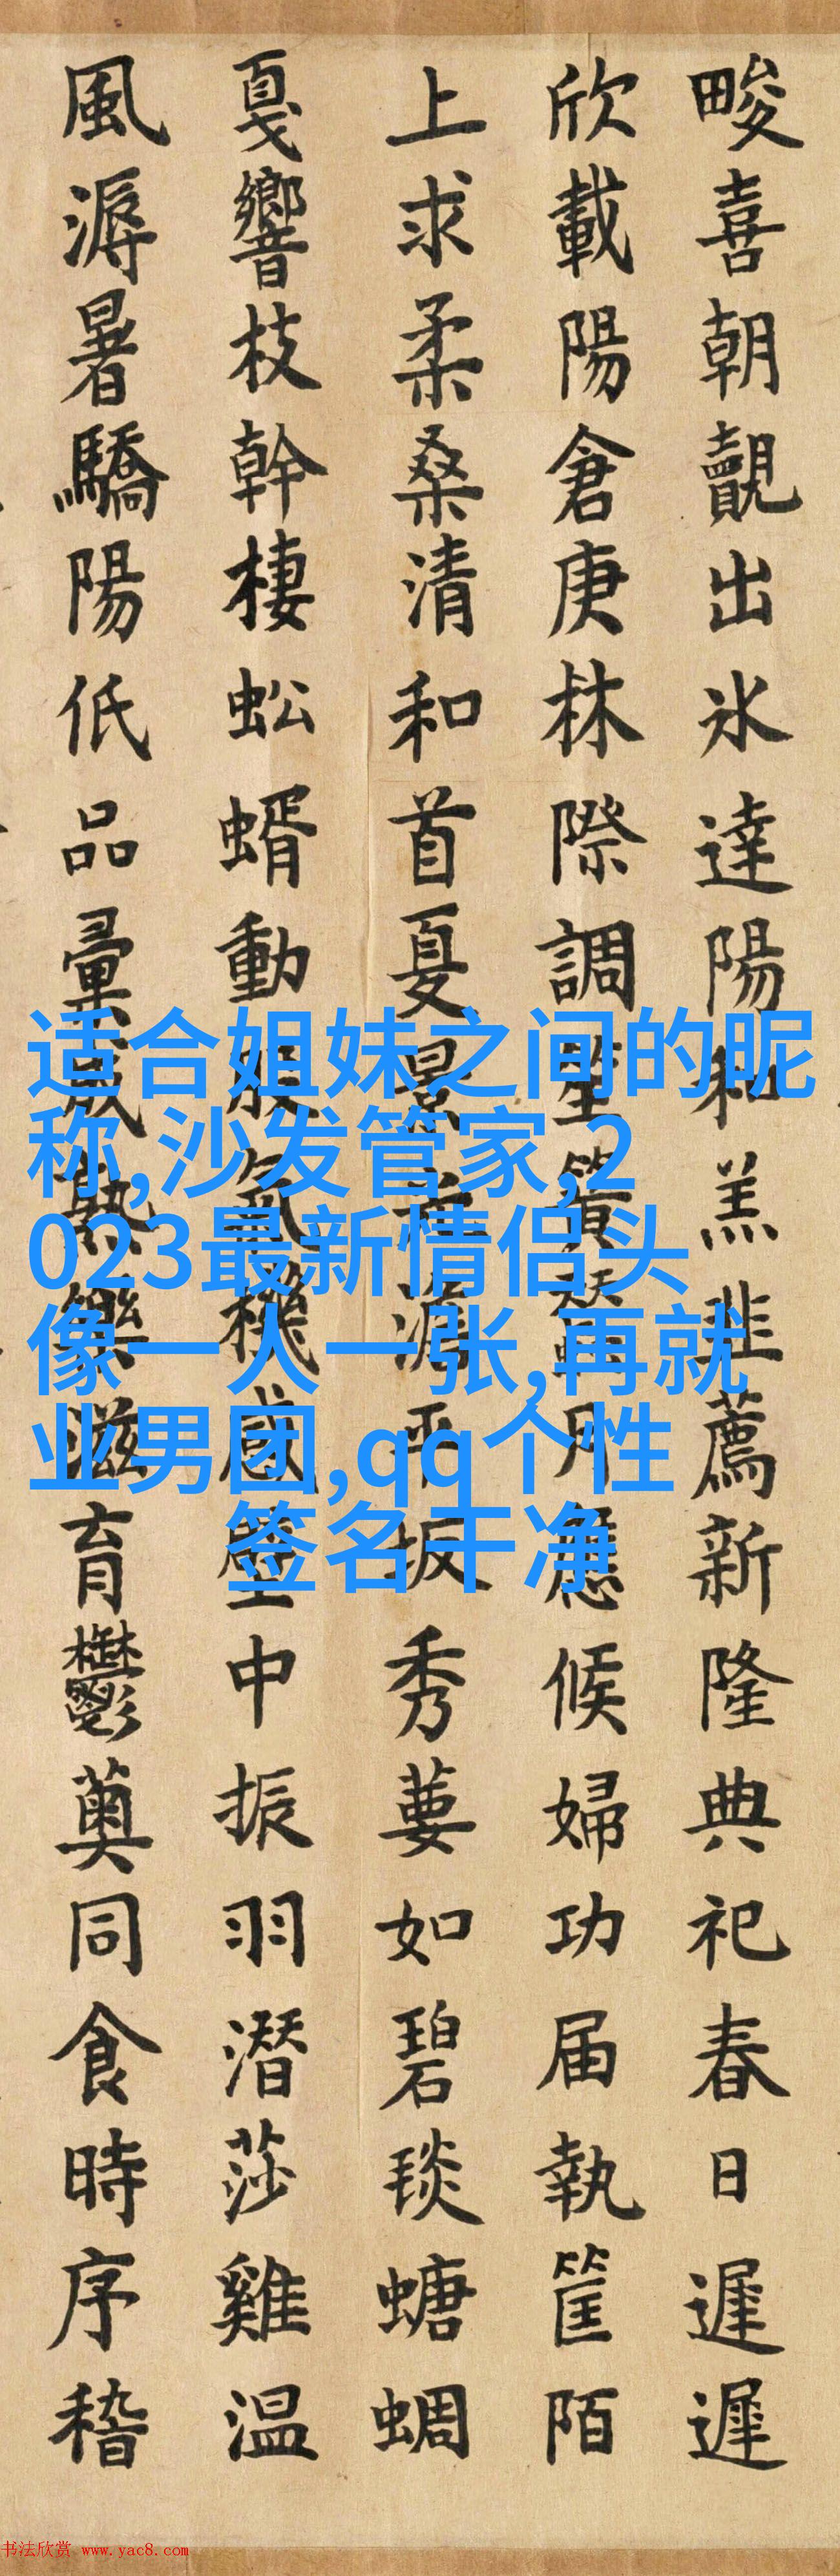 畯喜朝覿出氷達陽和羔韭薦新隆典祀春日遲遲
欣載陽倉庚林際調笙簧月應候婦功届執筐陌
上求柔桑清和首夏景平坂秀葽如碧琰螗蜩
戛響枝幹棲蚣蝑動股氣機感壁中振羽潛莎雞温
風溽暑驕陽低品彙咸熟樂滋育鬱薁同食時序稽
适合姐妹之间的昵
称,沙发管家,2
023最新情侣头
像一人一张,再就
业男团,qq个性
签名干净
书法欣赏 www.yac8.com